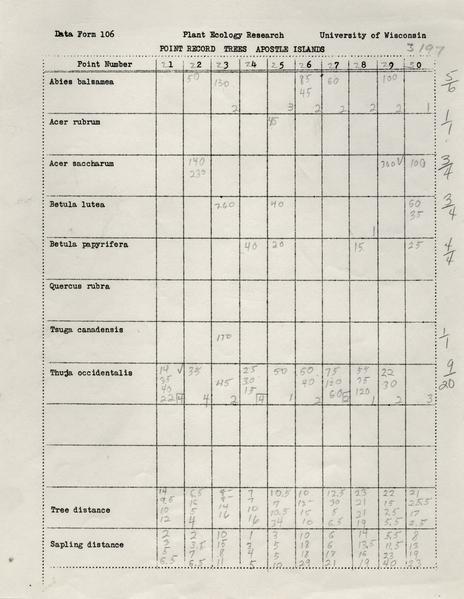 Data Form 106 Plant Ecology Research University of Wisconsin
POINT RECORD TREES APOSTLE ISLANDS 3197
Point Number 21 22 23 24 25 26 27 28 29 30
Abies balsamea 50 130 85 60 100 5/6
45
2 3 2 2 2 2 1
Acer rubrum 45 1/1
Acer saccharum 140 300 100 3/4
230
Betula lutea 260 40 60 3/4
35
1
Betula papyrifera 40 20 15 25 4/4
Quercus rubra
Tsuga canadensis 170 1/1
Thuja occidentalis 14 35 25 50 60 75 55 22 9/20
35 45 30 40 120 75 30
40 15 60 120
22 4 4 2 4 1 2 5 1 2 3
Tree distance 14 6.5 7 10.5 10 12.5 23 22 21
9.5 15 7 7 30 21 15 25.5
10 5 14 10 10.5 15 5 21 2.5 17
12 4 16 16 24 10 6.5 19 5.5 2.5
Sapling distance 2 2 10 1 3 10 6 14 5.5 8
3 3.5 15 2 5 18 6 13.5 11.5 13
5 7 8 4 5 18 17 16 23 19
6.5 6.5 11 5 10 29 21 19 40 23